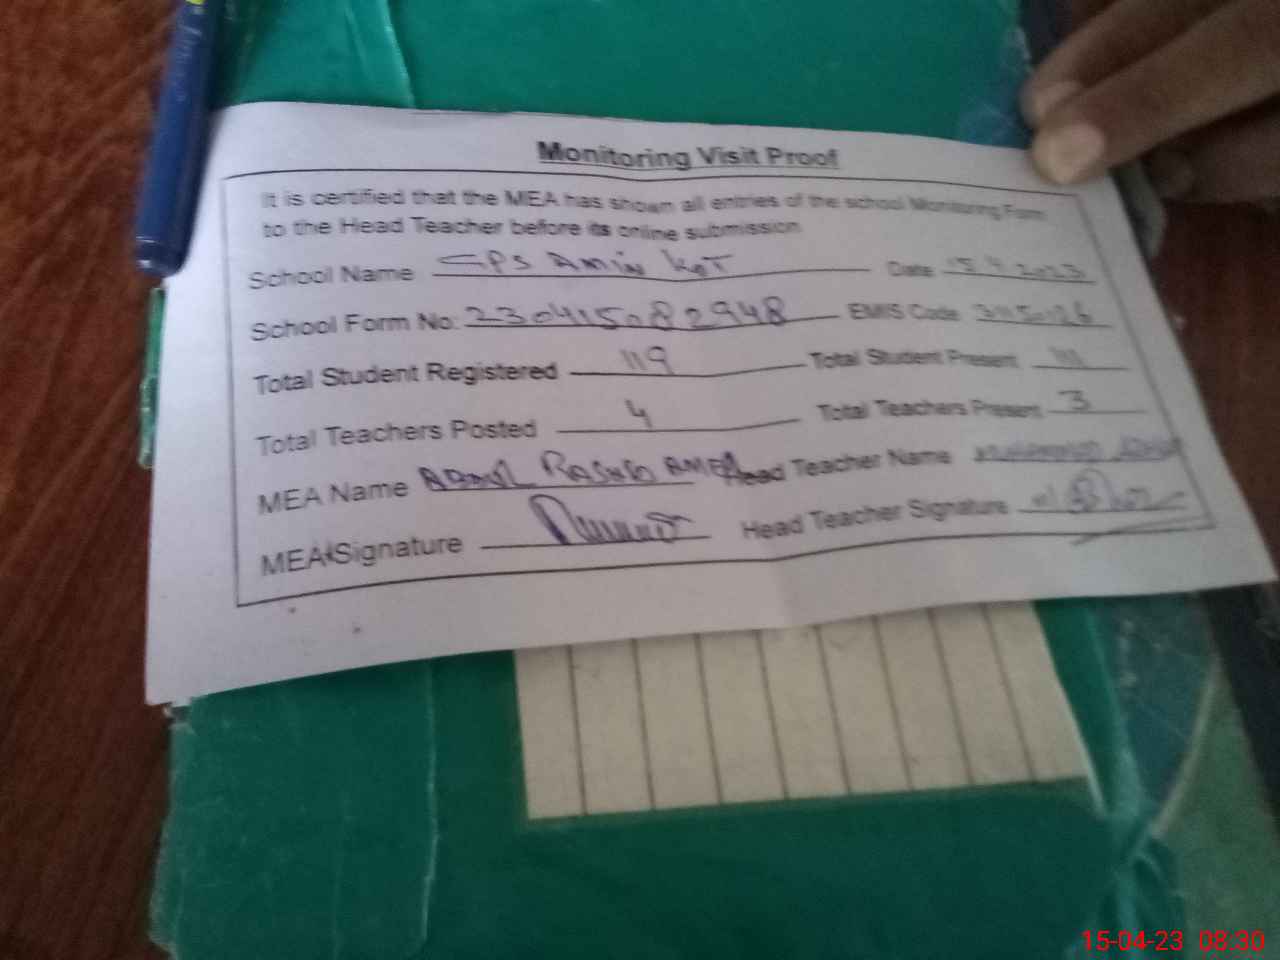 Monitoring Visit Proof
It is certified that the MEA has shown all entries of the school Monitoring Form
to the Head Teacher before its online submission
School Name GPS Amin Kot Date 15.4.2023
School Form No: 230415082948 EMIS Code
Total Student Registered 119 Total Student Present 111
Total Teachers Posted 4 Total Teachers Present 3
MEA Name Abdul Rashid AMEA Head Teacher Name
MEA Signature Head Teacher Signature
15-04-23 08:30